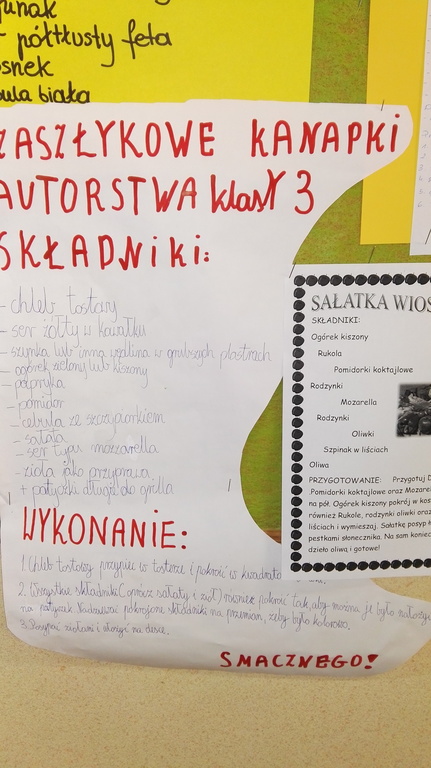 półtłusty feta
biała
ZASZŁYKOWE KANAPKI
AUTORSTWA klasy 3
SKŁADNIKI:
- chleb tostowy
- ser żółty w kawałku
- szynka lub inna wędlina w grubszych plastrach
- ogórek zielony lub kiszony
- papryka
- pomidor
- cebula ze szczypiorkiem
- sałata
- ser typu mozzarella
- zioła jako przyprawa
+ patyczki długie do grilla
WYKONANIE:
1. Chleb tostowy przypiec w tosterze i pokroić w kwadraty
2. Wszystkie składniki (oprócz sałaty i ziół) również pokroić tak, aby można je było
na patyczek. Nadziewać pokrojone składniki na przemian, żeby było kolorowo.
3. Posypać ziołami i ułożyć na desce.
SMACZNEGO!
SAŁATKA WIOS
SKŁADNIKI:
Ogórek kiszony
Rukola
Pomidorki koktajlowe
Rodzynki
Mozarella
Rodzynki
Oliwki
Szpinak w liściach
Oliwa
PRZYGOTOWANIE: Przygotuj
Pomidorki koktajlowe oraz Mozare
na pół. Ogórek kiszony pokrój w kos
również Rukole, rodzynki oliwki oraz
liściach i wymieszaj. Sałatkę posyp
pestkami słonecznika. Na sam koniec
dzieło oliwą i gotowe!